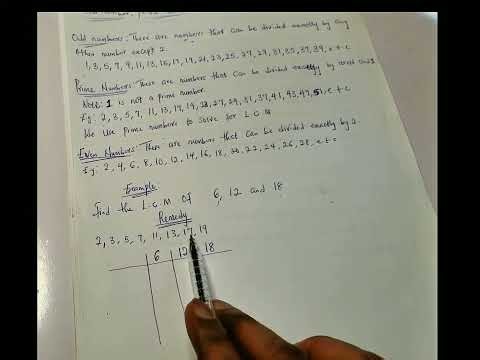 Odd numbers: These are numbers that can be divided exactly by any
other number except 2.
1, 3, 5, 7, 9, 11, 13, 15, 17, 19, 21, 23, 25, 27, 29, 31, 35, 37, 39, e t c
Prime Numbers: These are numbers that can be divided exactly by itself and 1
Note: 1 is not a prime number.
Eg: 2, 3, 5, 7, 11, 13, 17, 19, 23, 27, 29, 31, 37, 41, 43, 47, 51, e t c
We use prime numbers to solve for L.C.M
Even Numbers: These are numbers that can be divided exactly by 2.
Eg: 2, 4, 6, 8, 10, 12, 14, 16, 18, 20, 22, 24, 26, 28, e t c
Example
Find the L.C.M Of 6, 12 and 18
Remedy
2, 3, 5, 7, 11, 13, 17, 19
6 12 18